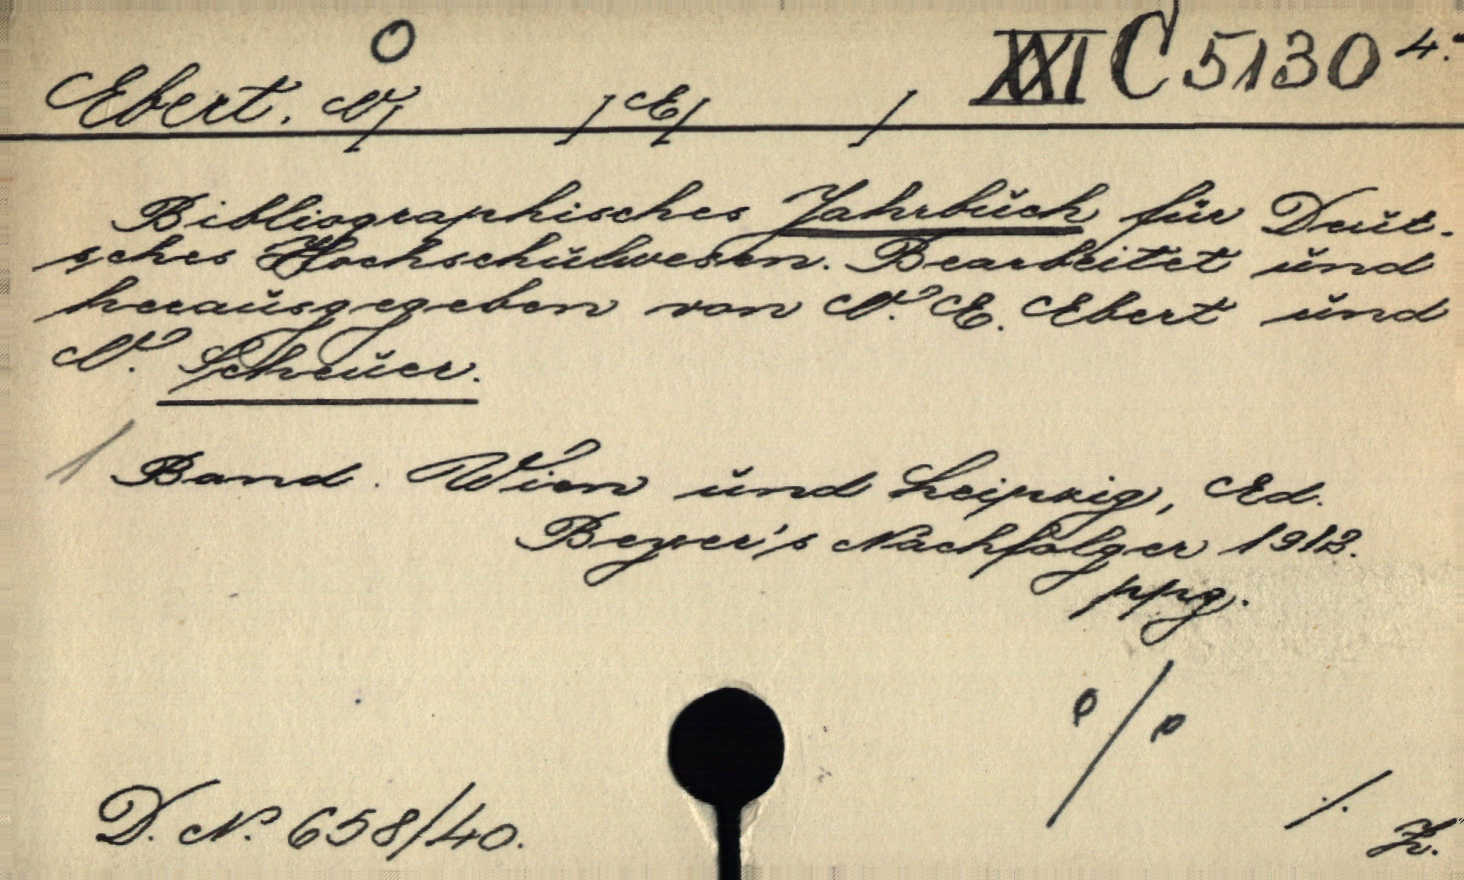 O
XXI C 5130 4.
Ebert. W[ ] E[ ]
Bibliographisches Jahrbuch für Deut-
sches Hochschulwesen. Bearbeitet und
herausgegeben von W. E. Ebert und
O. Scheuer.
1 Band. Wien und Leipzig, Ed.
Beyer's Nachfolger 1912.
ppg.
D. N. 658/40.